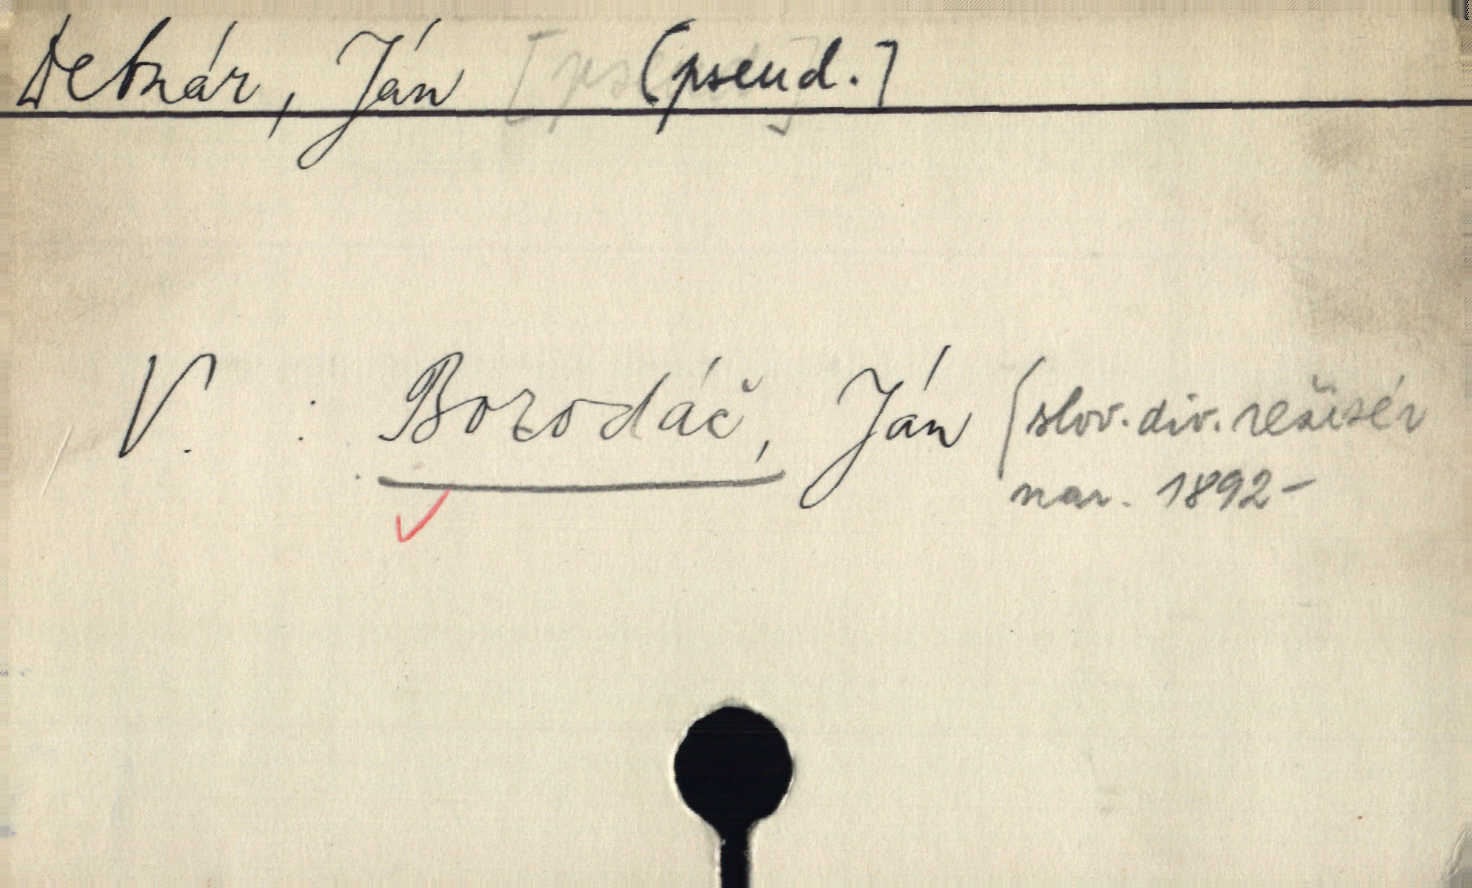 Debnár, Ján [pseud.]
V. : Borodáč, Ján (slov. div. režisér
nar. 1892-